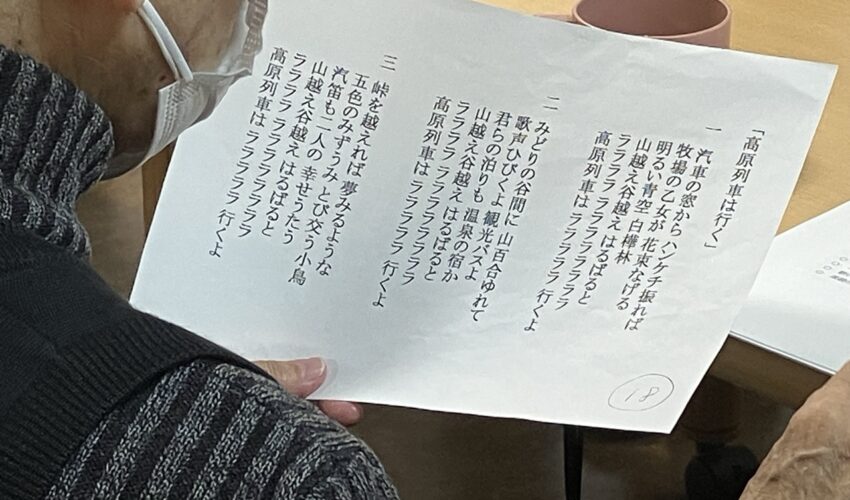 「高原列車は行く」
一 汽車の窓から ハンケチ振れば
牧場の乙女が 花束なげる
明るい青空 白樺林
山越え谷越え はるばると
ララララ ララララララ
高原列車は ララララ 行くよ
二 みどりの谷間に 山百合ゆれて
歌声ひびくよ 観光バスよ
君らの泊りも 温泉の宿か
山越え谷越え はるばると
ララララ ララララララ
高原列車は ララララ 行くよ
三 峠を越えれば 夢みるような
五色のみずうみ とび交う小鳥
汽笛も二人の 幸せうたう
山越え谷越え はるばると
ララララ ララララララ
高原列車は ララララ 行くよ
18